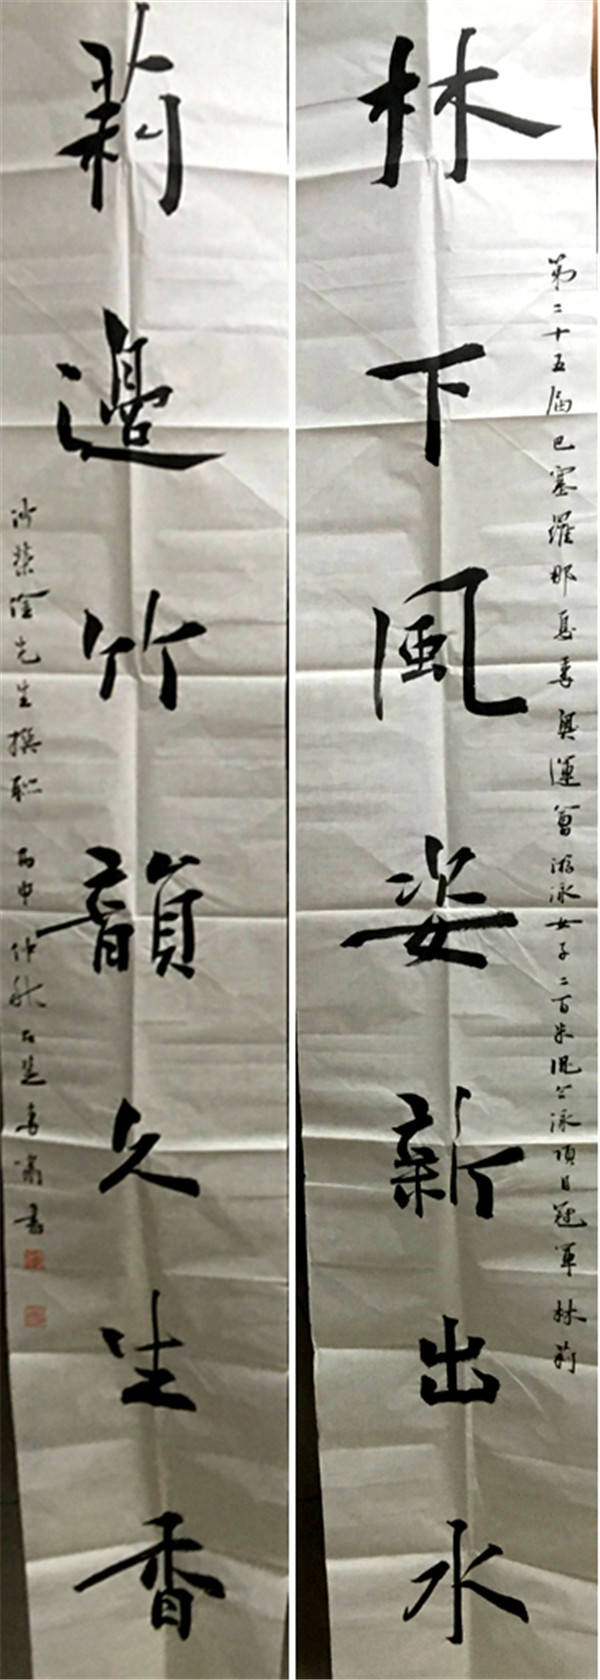 第二十五届巴塞羅那夏季奥運會游泳女子二百米混合泳項目冠軍林莉
林下風姿新出水
莉邊竹韻久生香
沙荣滄先生撰联 丙申仲秋古邑方肅書